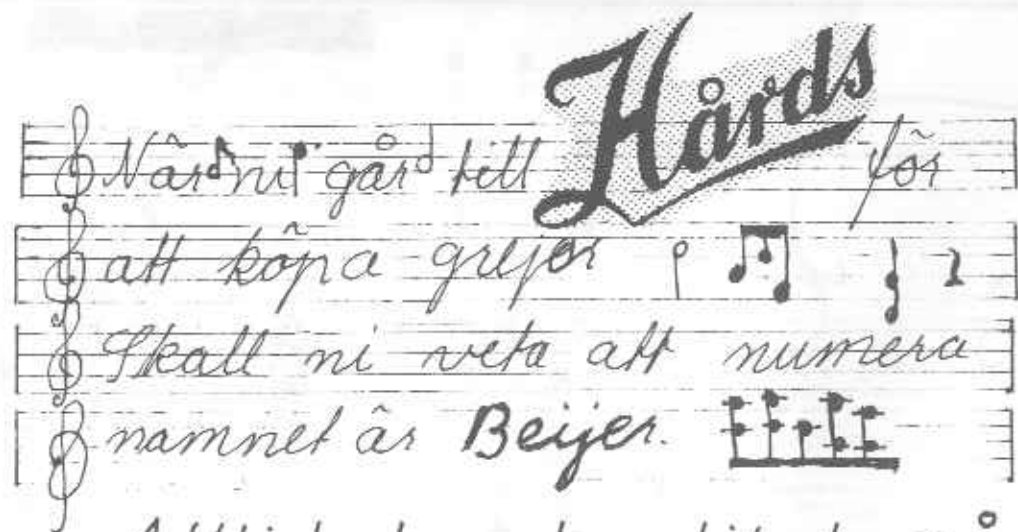 När ni går till Hårds för
att köpa grejer
Skall ni veta att numera
namnet är Beijer.